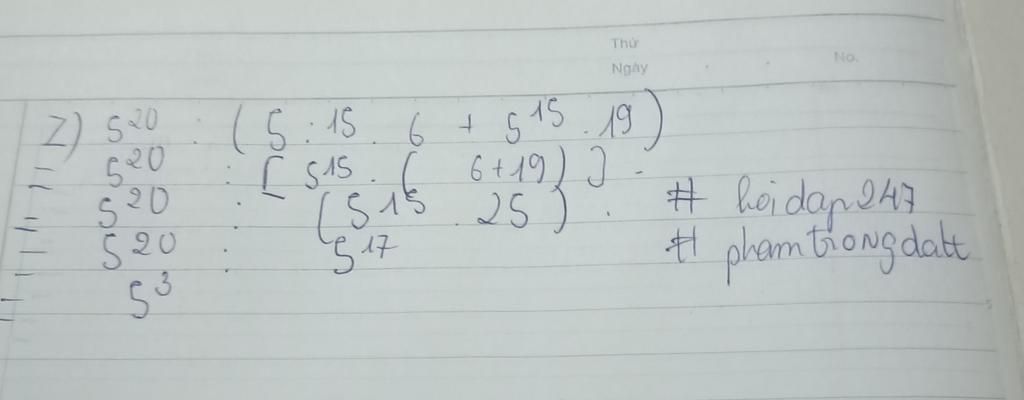 Thứ
Ngày No.
Z) 5²⁰ : (5 : 15 . 6 + 5¹⁵ . 19)
= 5²⁰ : [5¹⁵ . (6+19)] .
= 5²⁰ : (5¹⁵ . 25) . # hoidap247
= 5²⁰ : 5¹⁷ # phamtrongdatt
= 5³